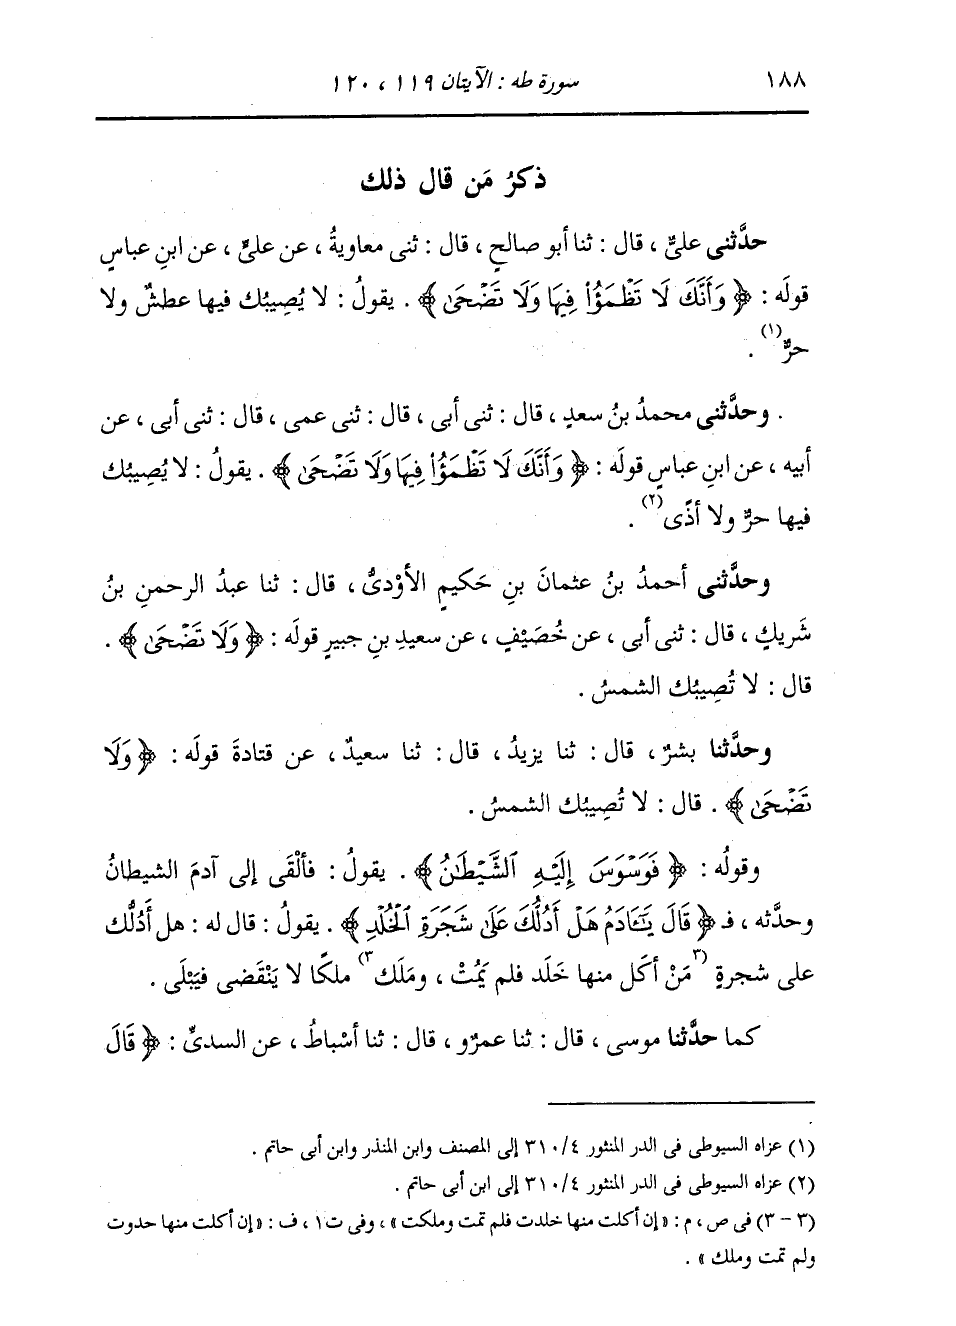 ١٨٨ سورة طه : الآيتان ١١٩ ، ١٢٠
ذكرُ مَن قال ذلك
حدَّثنى علىٌّ ، قال : ثنا أبو صالحٍ ، قال : ثنى معاويةُ ، عن علىٍّ ، عن ابنِ عباسٍ
قولَه : ﴿ وَأَنَّكَ لَا تَظْمَؤُا۟ فِيهَا وَلَا تَضْحَىٰ ﴾ . يقولُ : لا يُصِيبُك فيها عطشٌ ولا
حرٌّ (١) .
وحدَّثنى محمدُ بنُ سعدٍ ، قال : ثنى أبى ، قال : ثنى عمى ، قال : ثنى أبى ، عن
أبيه ، عن ابنِ عباسٍ قولَه : ﴿ وَأَنَّكَ لَا تَظْمَؤُا۟ فِيهَا وَلَا تَضْحَىٰ ﴾ . يقولُ : لا يُصِيبُك
فيها حرٌّ ولا أذًى (٢) .
وحدَّثنى أحمدُ بنُ عثمانَ بنِ حَكيمٍ الأَوْدىُّ ، قال : ثنا عبدُ الرحمنِ بنُ
شَريكٍ ، قال : ثنى أبى ، عن خُصَيْفٍ ، عن سعيدِ بنِ جبيرٍ قولَه : ﴿ وَلَا تَضْحَىٰ ﴾ .
قال : لا تُصِيبُك الشمسُ .
وحدَّثنا بشرٌ ، قال : ثنا يزيدُ ، قال : ثنا سعيدٌ ، عن قتادةَ قولَه : ﴿ وَلَا
تَضْحَىٰ ﴾ . قال : لا تُصِيبُك الشمسُ .
وقولُه : ﴿ فَوَسْوَسَ إِلَيْهِ ٱلشَّيْطَٰنُ ﴾ . يقولُ : فألْقَى إلى آدمَ الشيطانُ
وحدَّثه ، فـ ﴿ قَالَ يَٰٓـَٔادَمُ هَلْ أَدُلُّكَ عَلَىٰ شَجَرَةِ ٱلْخُلْدِ ﴾ . يقولُ : قال له : هل أَدُلُّك
على شجرةٍ (٣ مَنْ أكَل منها خَلَد فلم يَمُتْ ، ومَلَك ٣) ملكًا لا يَنْقَضى فيَبْلَى .
كما حدَّثنا موسى ، قال : ثنا عمرٌو ، قال : ثنا أسْباطُ ، عن السدىِّ : ﴿ قَالَ
(١) عزاه السيوطى فى الدر المنثور ٣١٠/٤ إلى المصنف وابن المنذر وابن أبى حاتم .
(٢) عزاه السيوطى فى الدر المنثور ٣١٠/٤ إلى ابن أبى حاتم .
(٣ - ٣) فى ص ، م : « إن أكلت منها خلدت فلم تمت وملكت » ، وفى ت١ ، ف : « إن أكلت منها حدوت
ولم تمت وملك » .